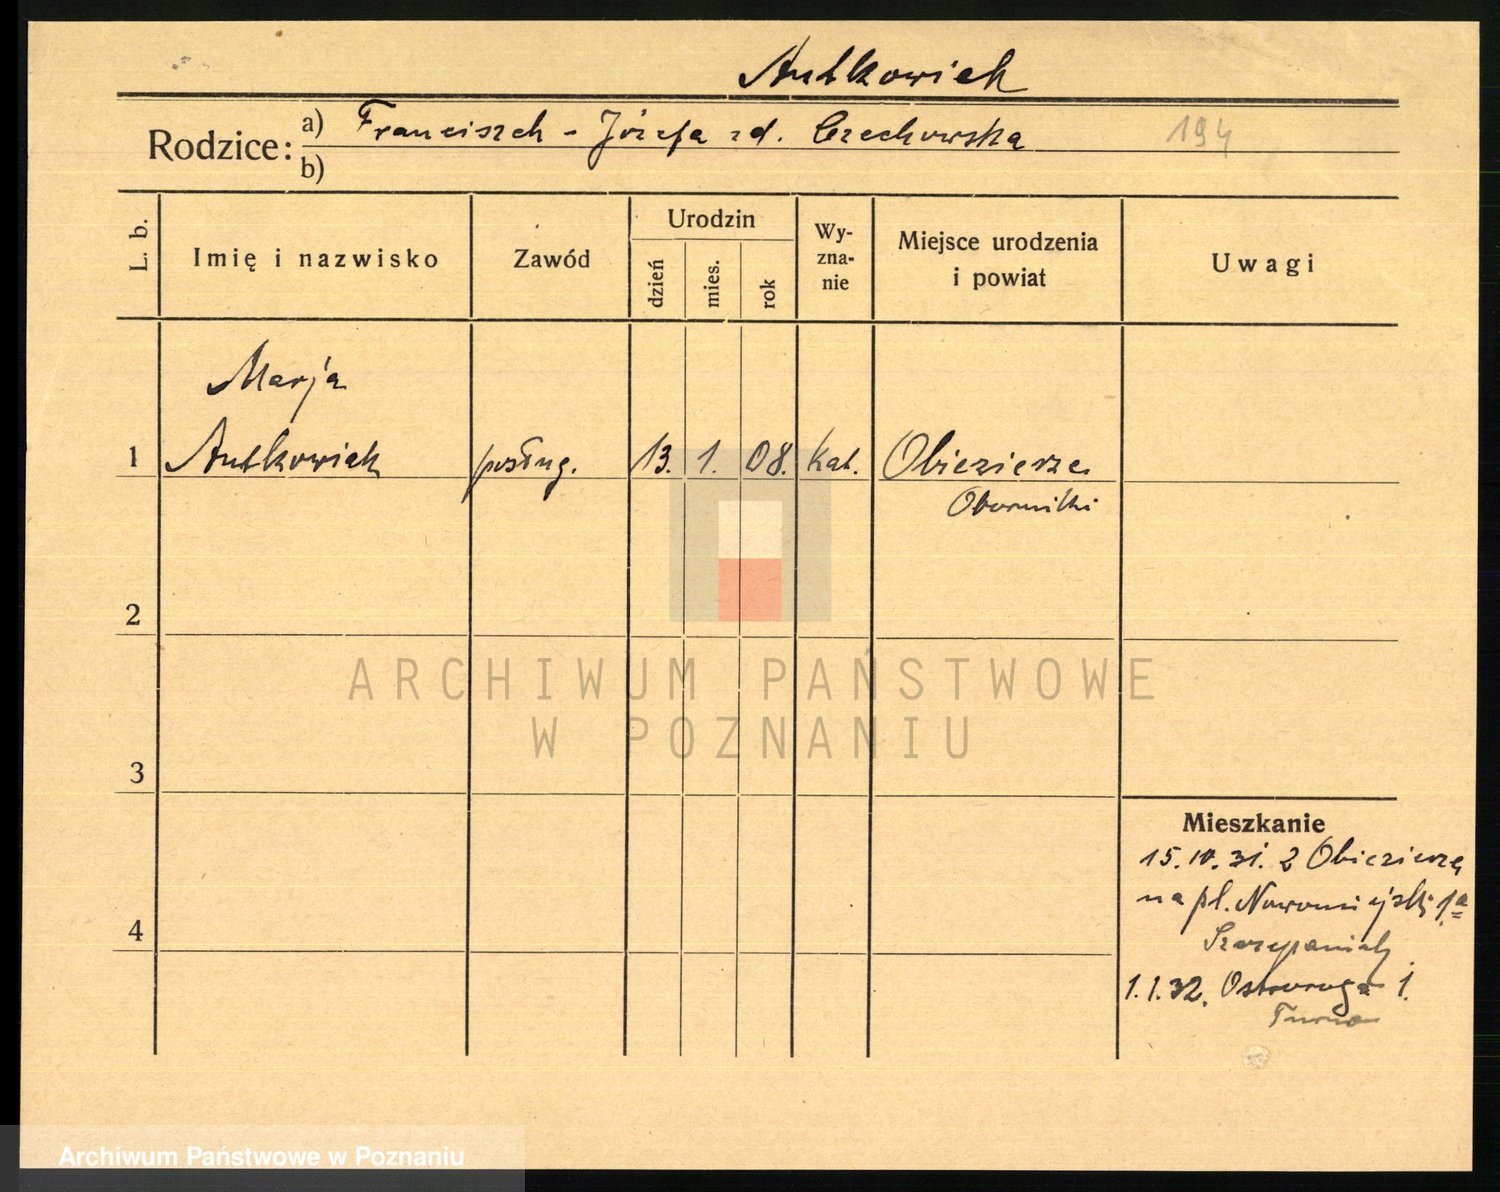 Antkowiak
Rodzice:
a) Franciszek - Józefa zd. Czechowska
194
b)
L. b.
Imię i nazwisko
Zawód
Urodzin
dzień
mies.
rok
Wy-
zna-
nie
Miejsce urodzenia
i powiat
Uwagi
Marja
1 Antkowiak posług. 13. 1. 08. kat. Obiezierze
Oborniki
2
3
4
Mieszkanie
15.10.31. z Obiezierzą
na pl. Nowomiejski 1a
Szczepaniak
1.1.32. Ostroroga 1.
Turno
ARCHIWUM PAŃSTWOWE
W POZNANIU
Archiwum Państwowe w Poznaniu